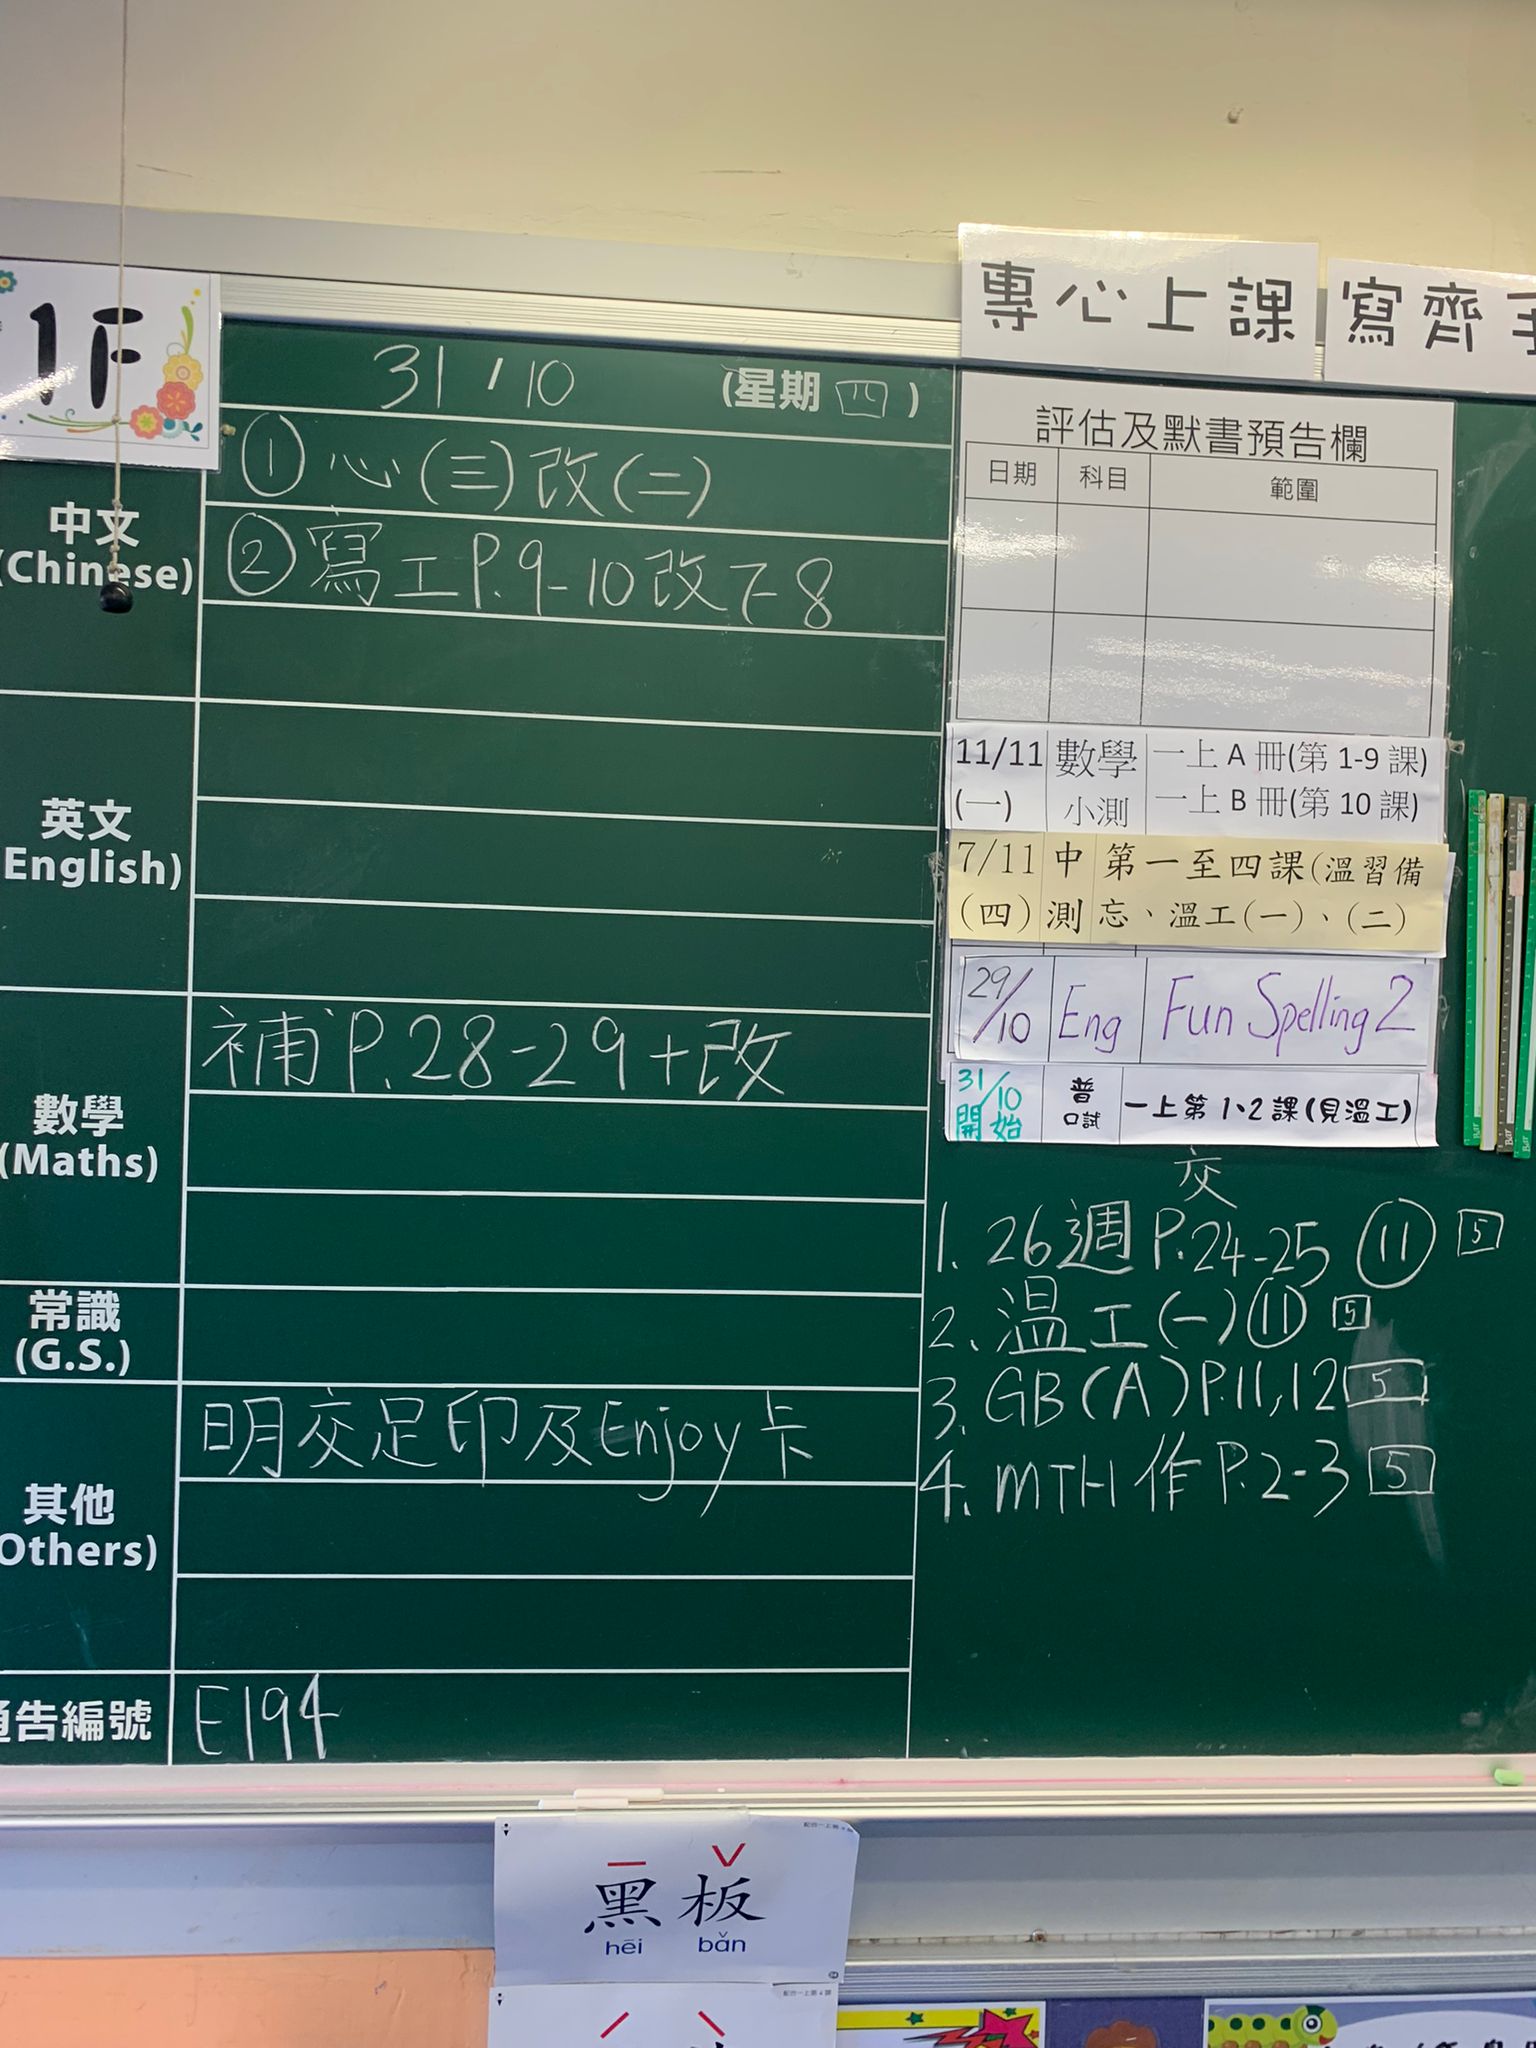 1F
專心上課
寫齊
31/10 (星期四)
中文
(Chinese)
① 心(三)改(二)
② 寫工P.9-10改7-8
英文
English)
數學
(Maths)
補P.28-29+改
常識
(G.S.)
其他
Others)
明交足印及Enjoy卡
告編號
E194
評估及默書預告欄
日期 科目 範圍
11/11 數學 一上A冊(第1-9課)
(一) 小測 一上B冊(第10課)
7/11 中 第一至四課(溫習備
(四) 測 忘、溫工(一)、(二)
29/10 Eng Fun Spelling 2
31/10 開始 普 口試 一上第1、2課(見溫工)
交
1. 26週 P.24-25 ⑪ 5
2. 溫工(一) ⑪ 5
3. GB(A)P.11,12 5
4. MTH作P.2-3 5
黑板
hēi bǎn